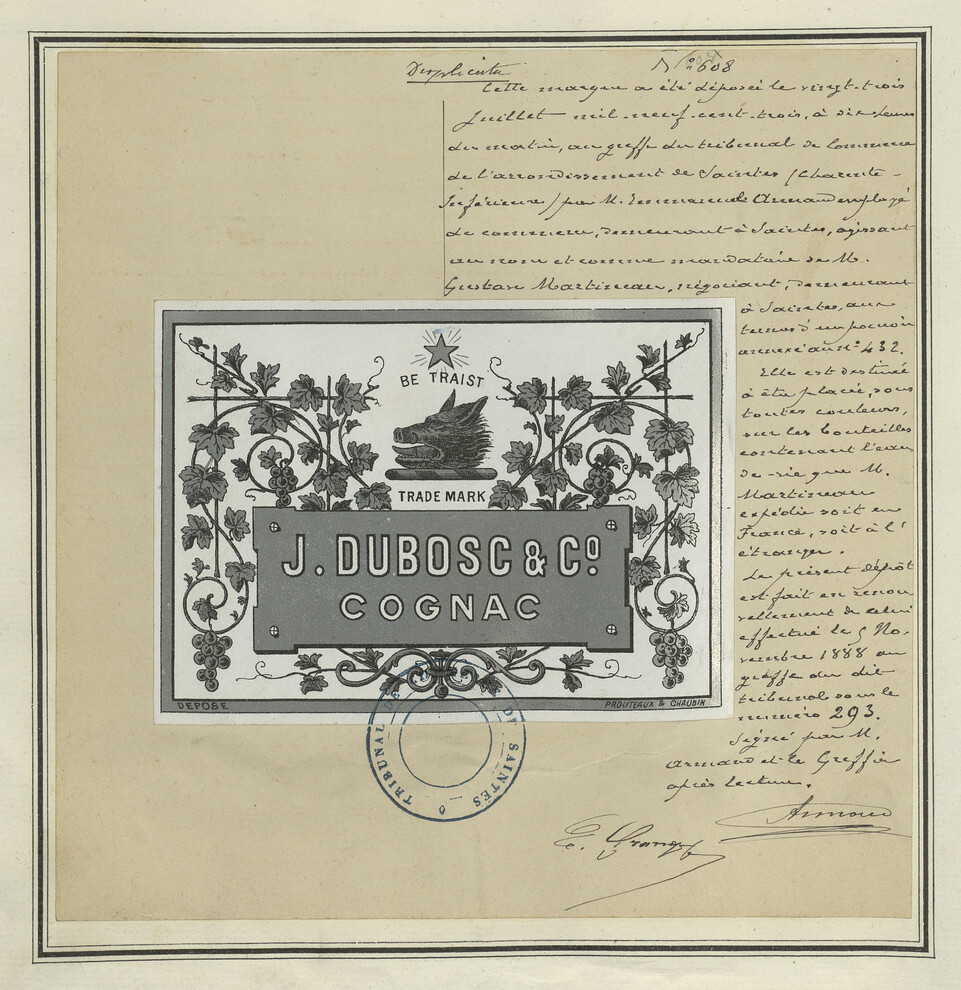 Duplicata
N° 608
Cette marque a été déposée le vingt-trois
Juillet mil neuf cent trois, à dix heures
du matin, au greffe du tribunal de Commerce
de l'arrondissement de Saintes (Charente-
Inférieure) par M. Emmanuel Armand employé
de commerce, demeurant à Saintes, agissant
au nom et comme mandataire de M.
Gustave Martineau, négociant, demeurant
à Saintes, aux
termes d'un pouvoir
annexé au N° 432.
Elle est destinée
à être placée, sous
toutes couleurs,
sur les bouteilles
contenant l'eau
de-vie que M.
Martineau
expédie soit en
France, soit à l'
étranger.
Le présent dépôt
est fait en renou
vellement de celui
effectué le 5 No-
vembre 1888 au
greffe du dit
tribunal sous le
numéro 293.
Signé par M.
Armand et le Greffier
après lecture.
BE TRAIST
TRADE MARK
J. DUBOSC & Cº
COGNAC
DEPOSE
PROUTEAUX & CHAUBIN
TRIBUNAL DE DE SAINTES
Armand